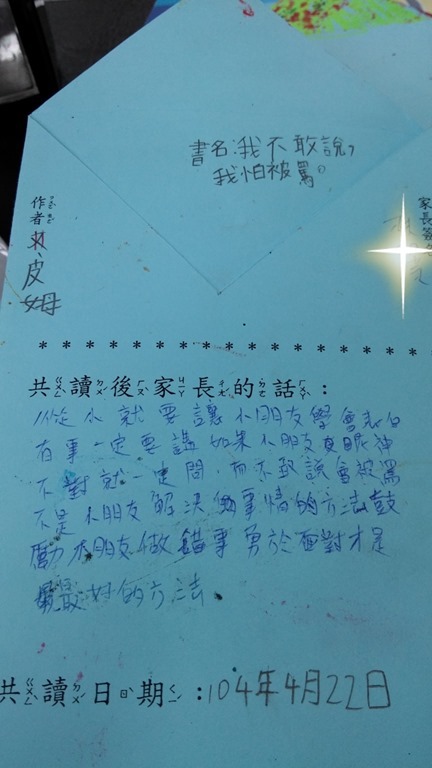 書名:我不敢說,
我怕被罵。
作者 林、皮姆
家長簽名
共讀後家長的話:
從小就要讓小朋友學會表白
有事一定要講如果小朋友眼神
不對就一定問,而不敢說會被罵
不是小朋友解決事情的方法鼓
勵小朋友做錯事勇於面對才是
最好的方法.
共讀日期:104年4月22日